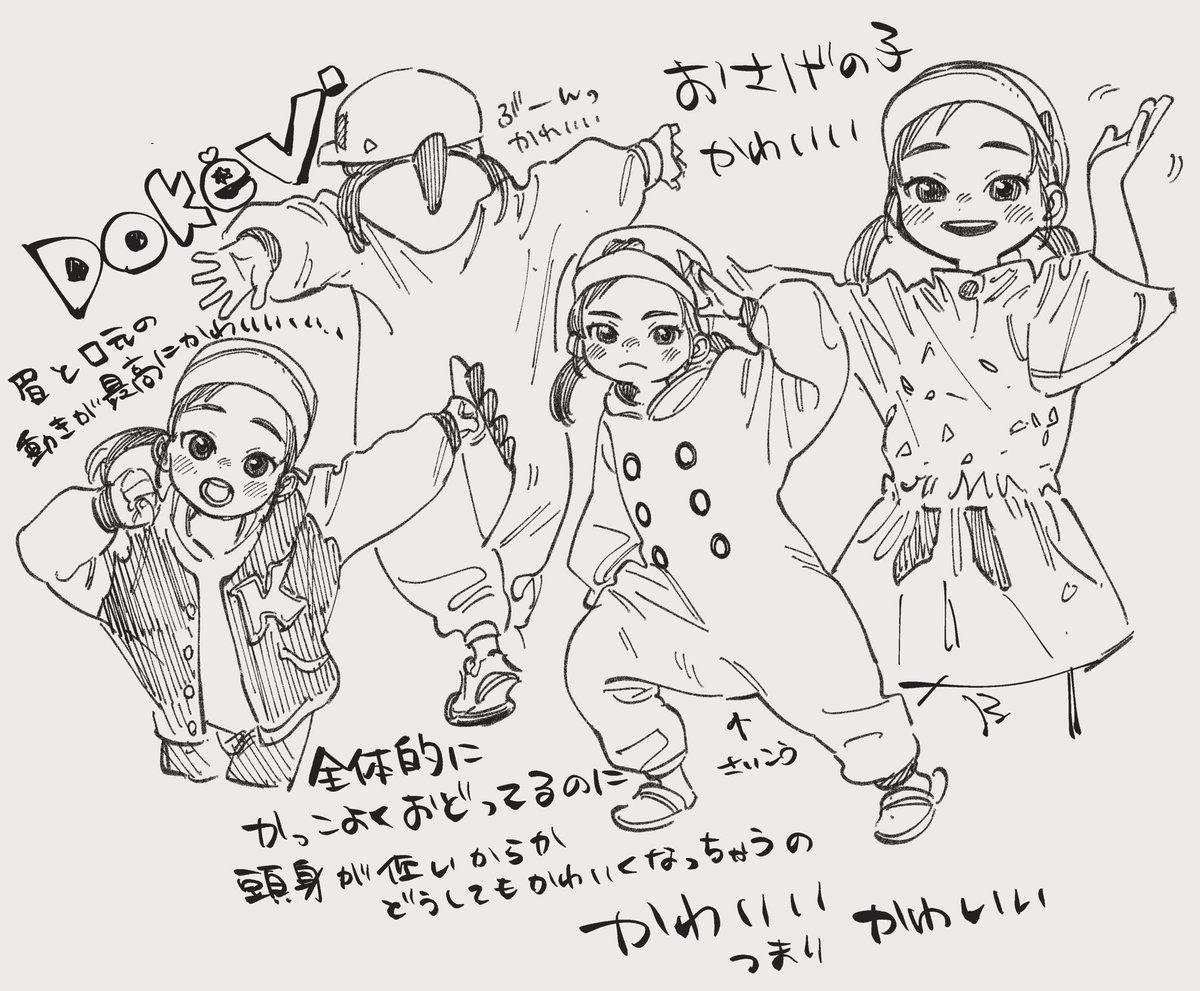 DOKéV
ぶーんっ
かわいい
おさげの子
かわいい
眉と口元の
動きが最高にかわいいいい...
K
↑
さいこう
全体的に
かっこよくおどってるのに
頭身が低いからか
どうしてもかわいくなっちゃうの
かわいい
つまり
かわいい